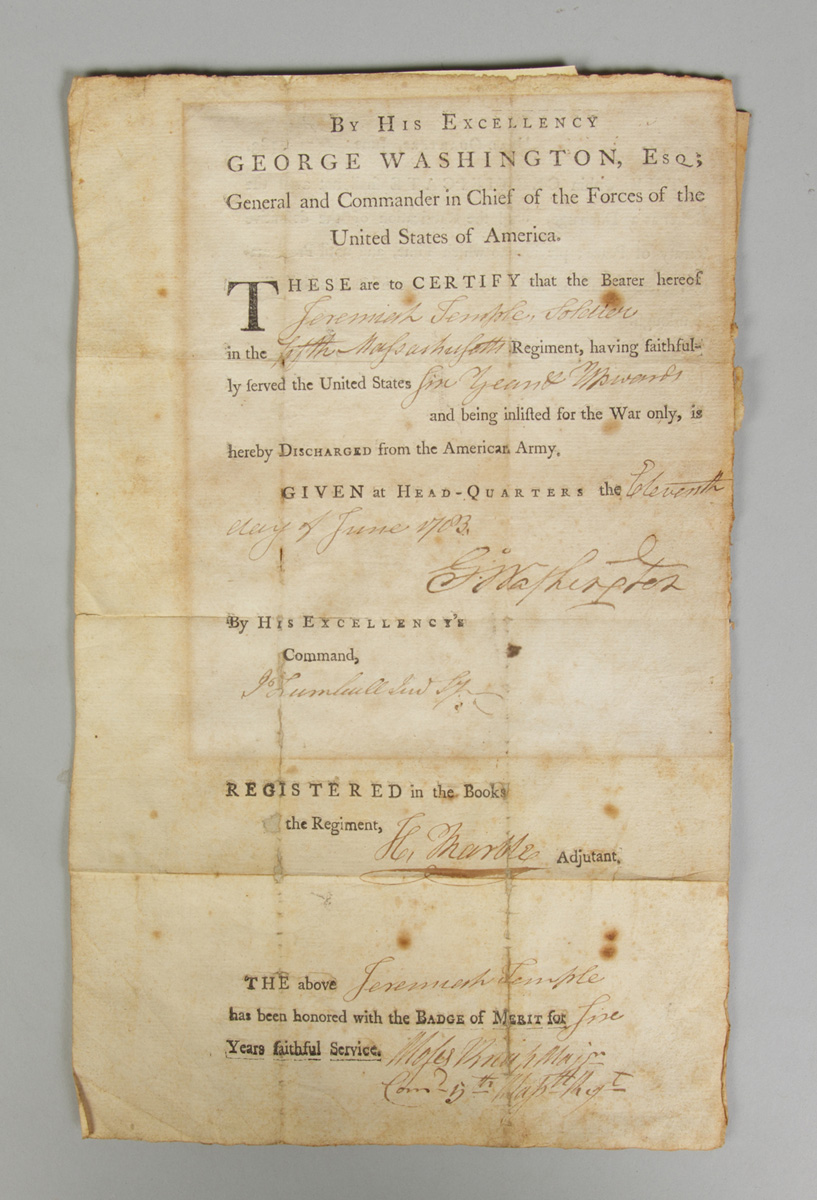 By His Excellency
GEORGE WASHINGTON, Esq;
General and Commander in Chief of the Forces of the
United States of America.
THESE are to CERTIFY that the Bearer hereof
Jeremiah Temple, Soldier
in the fifth Maſsachuſetts Regiment, having faithful-
ly ſerved the United States ſix Years & Upwards
and being inliſted for the War only, is
hereby Discharged from the American Army.
GIVEN at Head-Quarters the Eleventh
day of June 1783.
G:Washington
By His Excellency's
Command,
J Trumbull Jun Sy
REGISTERED in the Books
the Regiment,
H. Marble Adjutant.
THE above Jeremiah Temple
has been honored with the Badge of Merit for Six
Years faithful Service. Moſes Knap Major
Comd 5th Maſstts Regt